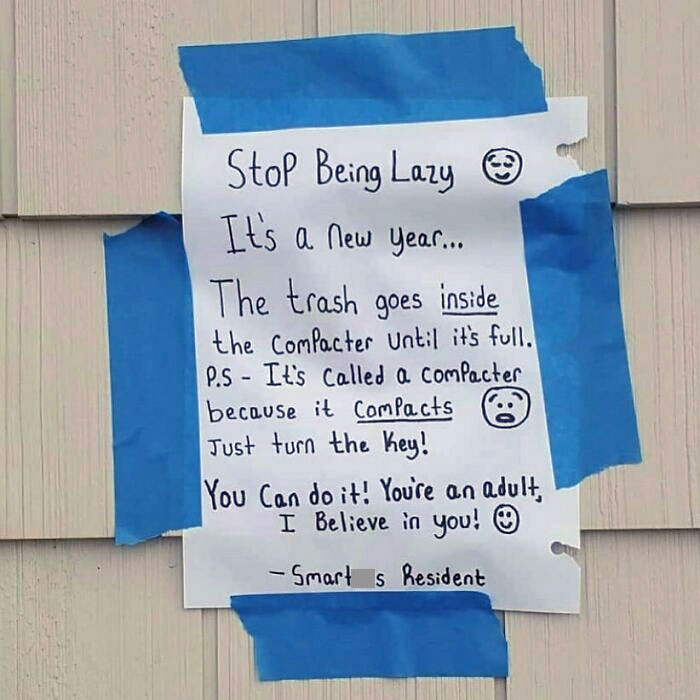 Stop Being Lazy
It's a new year...
The trash goes inside
the compacter until it's full.
P.S - It's called a compacter
because it compacts
Just turn the key!
You can do it! You're an adult,
I Believe in you!
- Smart s Resident